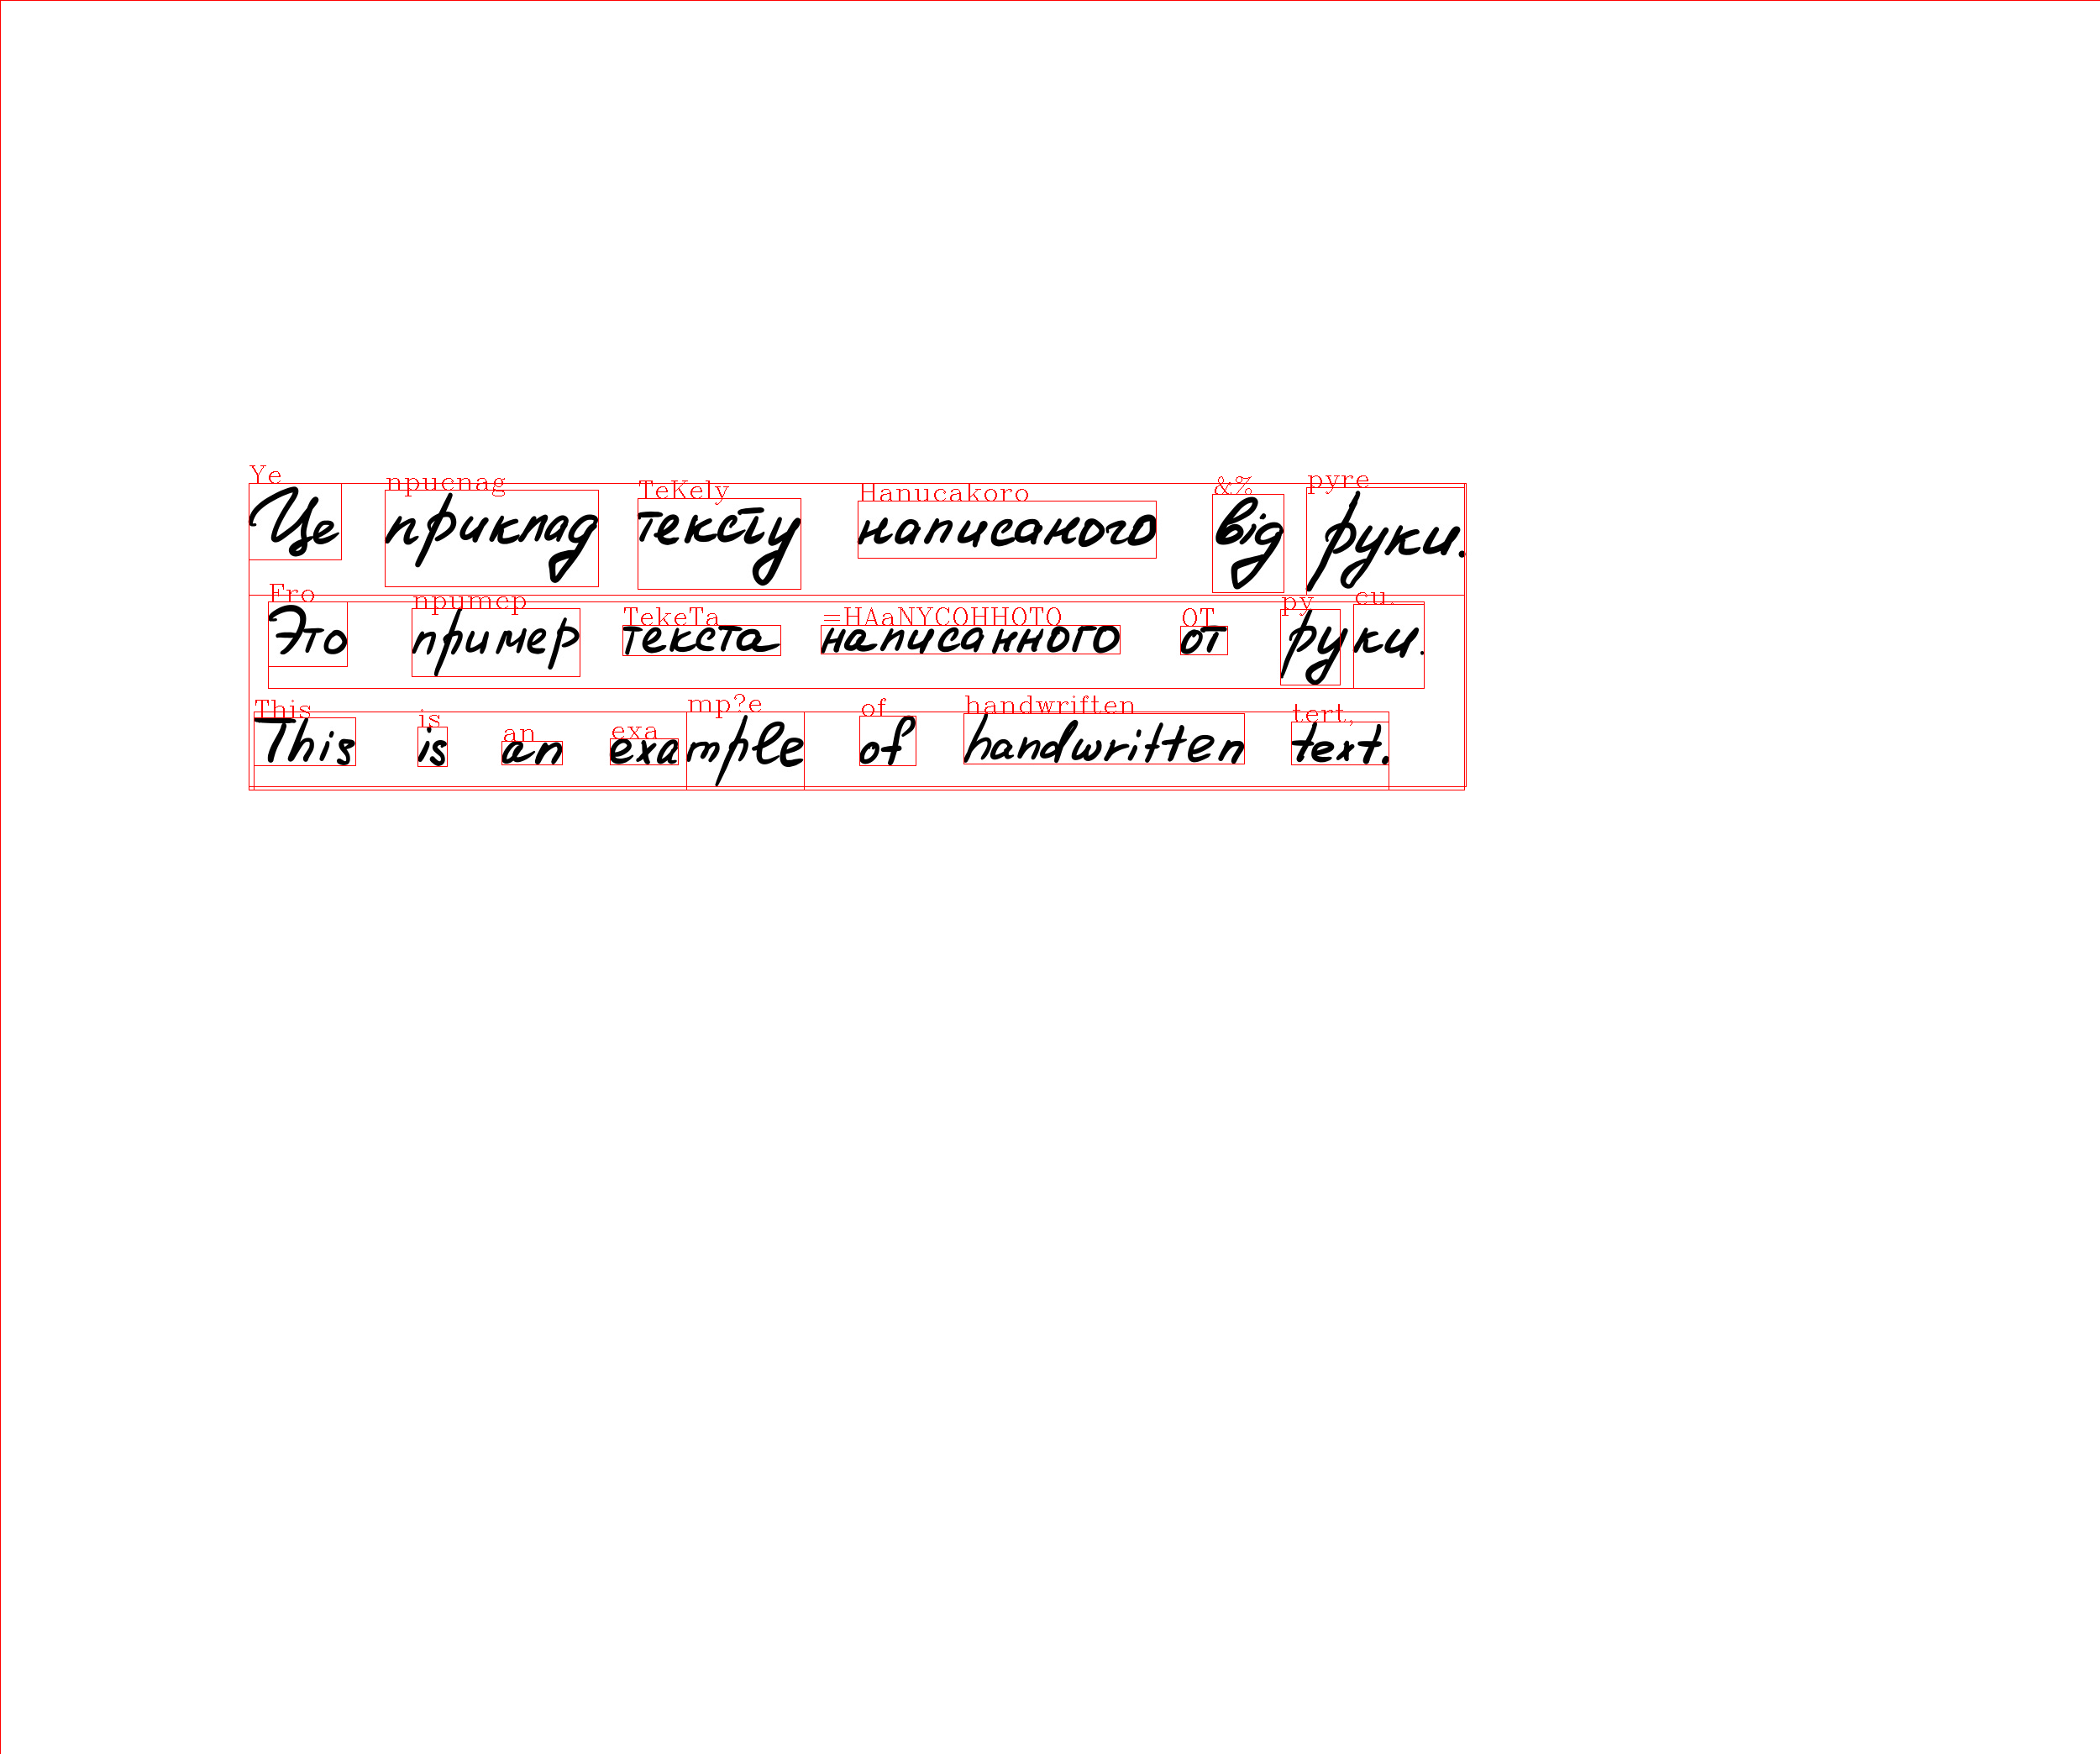 Ye npucnag TeKely Hanucakoro &% pyre
Це приклад тексту написаного від руки.
Fro npumep TekeTa =HAaNYCOHHOTO OT py cu.
Это пример текста написанного от руки.
This is an exa mp?e of handwriften tert,
This is an example of handwritten text.